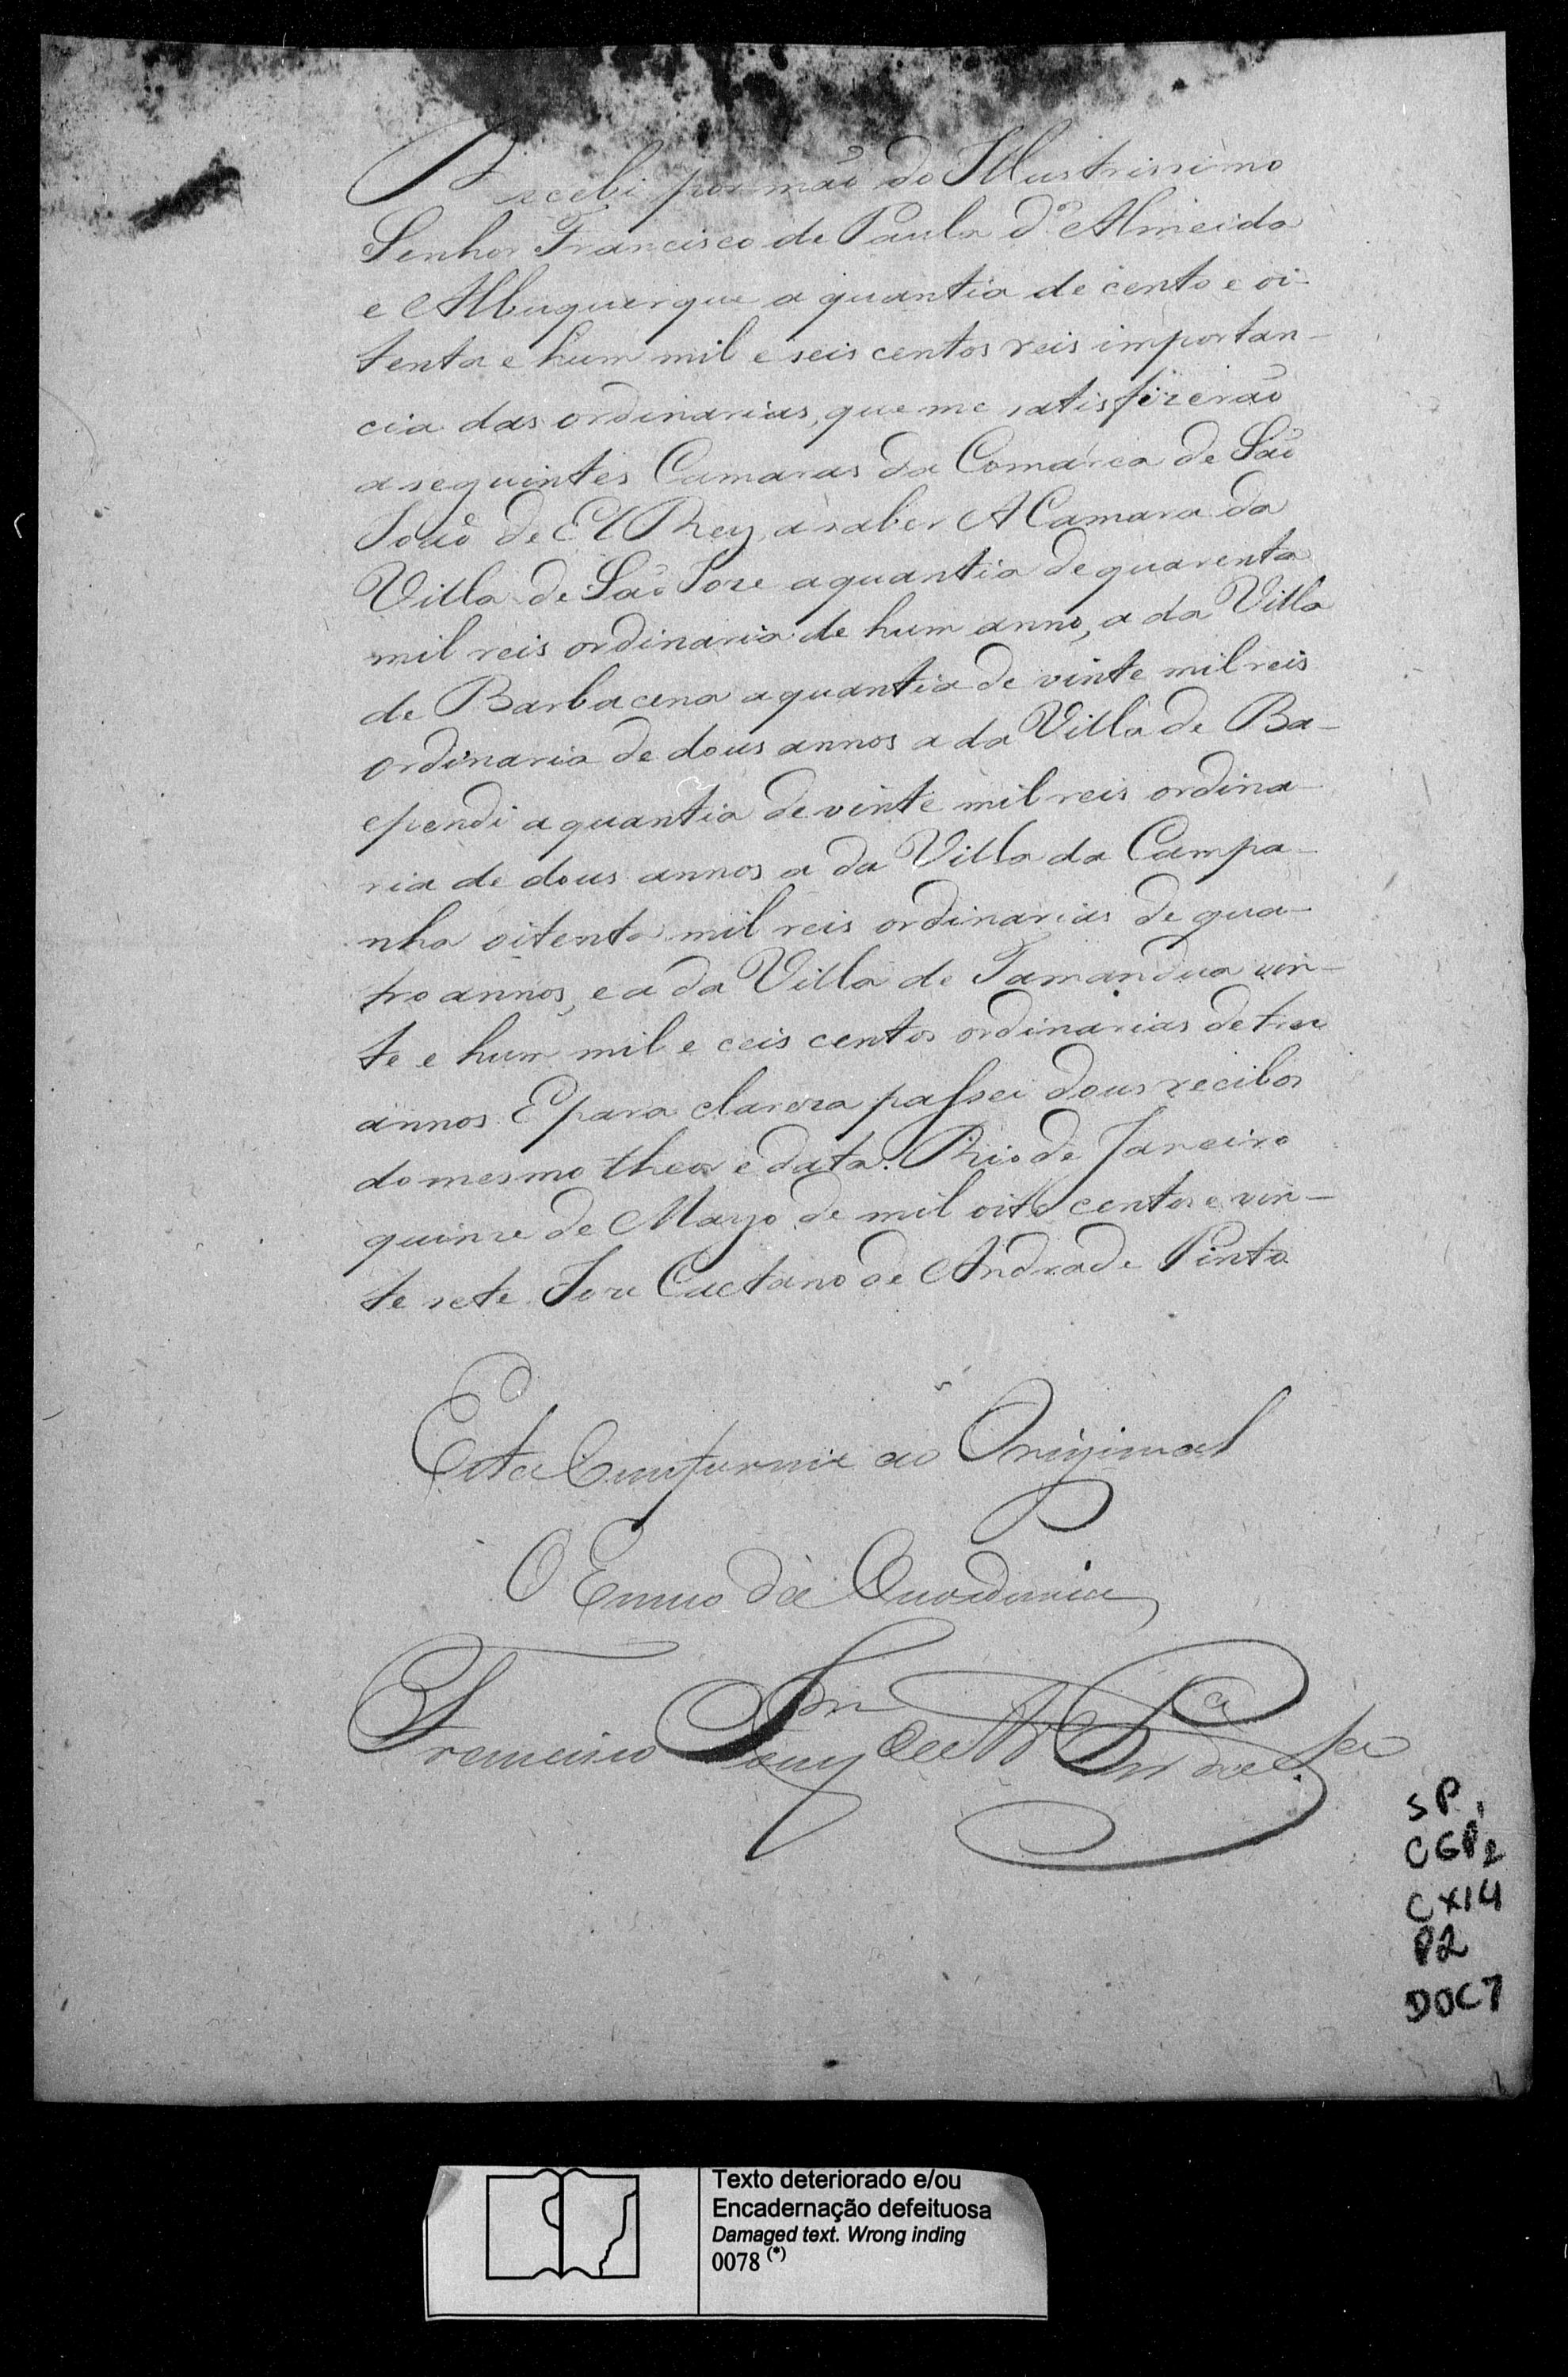 Recebi por mão do Illustrissimo
Senhor Francisco de Paula d'Almeida
e Albuquerque a quantia de cento e oi-
tenta e hum mil e seis centos reis importan-
cia das ordinarias, que me satisfizerão
a seguintes Camaras da Comarca de São
João de El Rey, a saber A Camara da
Villa de São Joze a quantia de quarenta
mil reis ordinaria de hum anno, a da Villa
de Barbacena a quantia de vinte mil reis
ordinaria de dous annos a da Villa de Ba-
ependi a quantia de vinte mil reis ordina-
ria de dous annos a da Villa da Campa-
nha oitenta mil reis ordinarias de qua-
tro annos, e a da Villa de Tamandua vin-
te e hum mil e ceis centos ordinarias de tres
annos E para clareza passei dous recibos
do mesmo theor e data. Rio de Janeiro
quinze de Março de mil oito centos e vin-
te sete Joze Caetano de Andrade Pinto
Esta Comforme ao Original
O da Ouvedoria
Francisco
SP,
CGP2
CX14
P2
DOC7
Texto deteriorado e/ou
Encadernação defeituosa
Damaged text. Wrong inding
0078 (*)